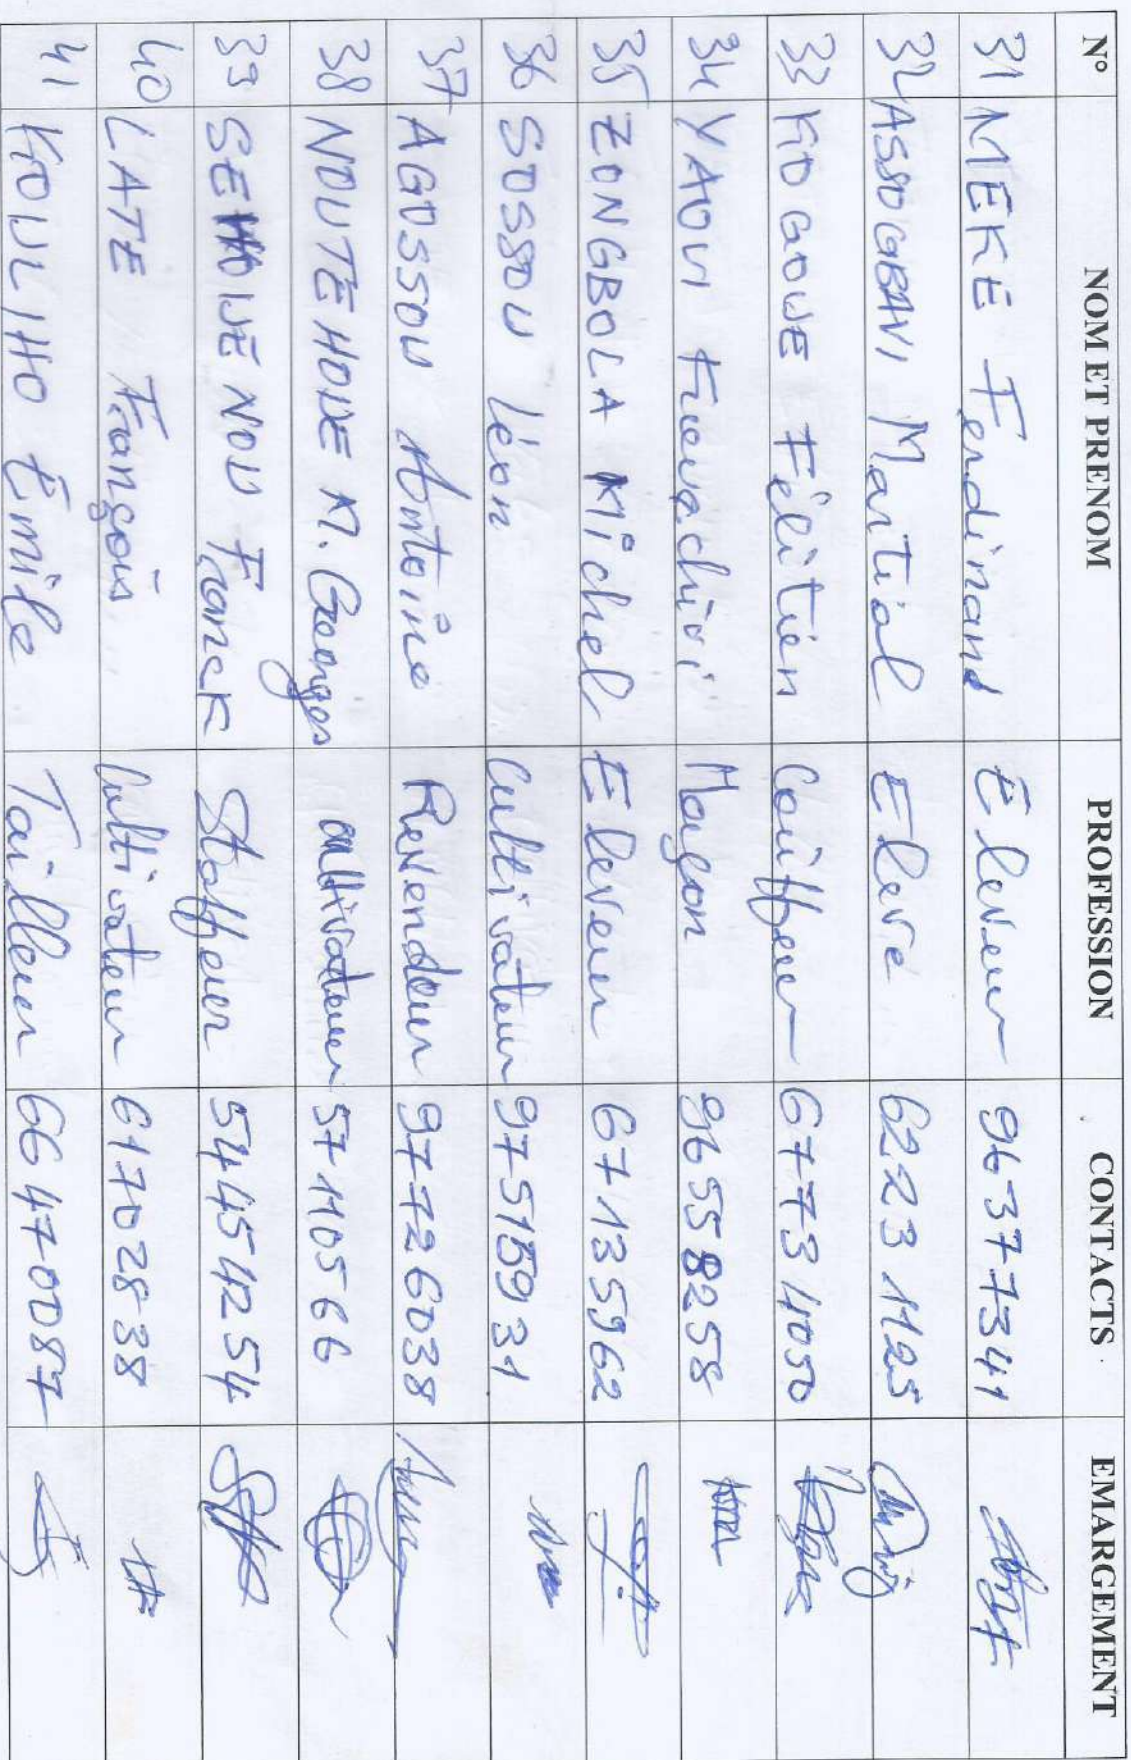 N° NOM ET PRENOM PROFESSION CONTACTS EMARGEMENT
31 MEKE Ferdinand Éleveur 96377341
32 ASSOGBAVI Martial Elevé 62231125
33 KOGOWE Félitien Coiffeur 67734050
34 YAOVI Maçon 96558258
35 ZONGBOLA Michel Eleveur 67135962
36 SOSSOU Léon Cultivateur 97515931
37 AGOSSOU Antoine Revendeur 97726038
38 NOUTEHOUE M. Georges cultivateur 57110566
39 SEHOUENOU Franck Staffeur 54454254
40 LATE François Cultivateur 61702838
41 KOULIHO Émile Tailleur 66470087